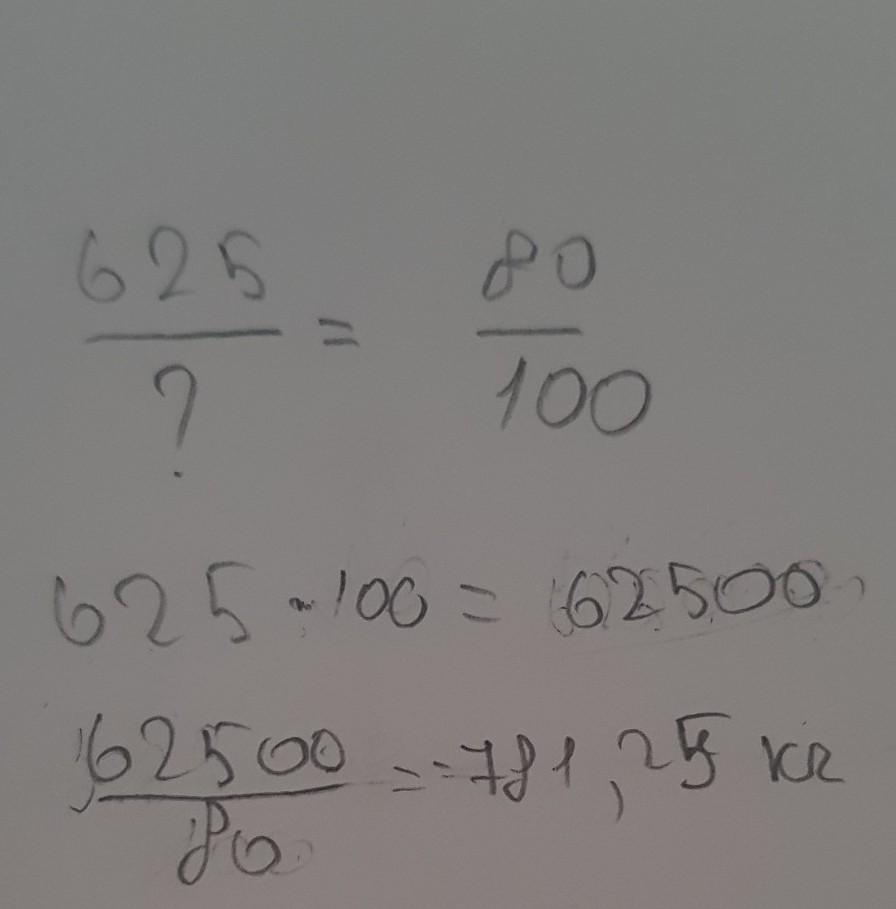 625 = 80
? 100
625 · 100 = 62500
62500 = 781,25 kr
80